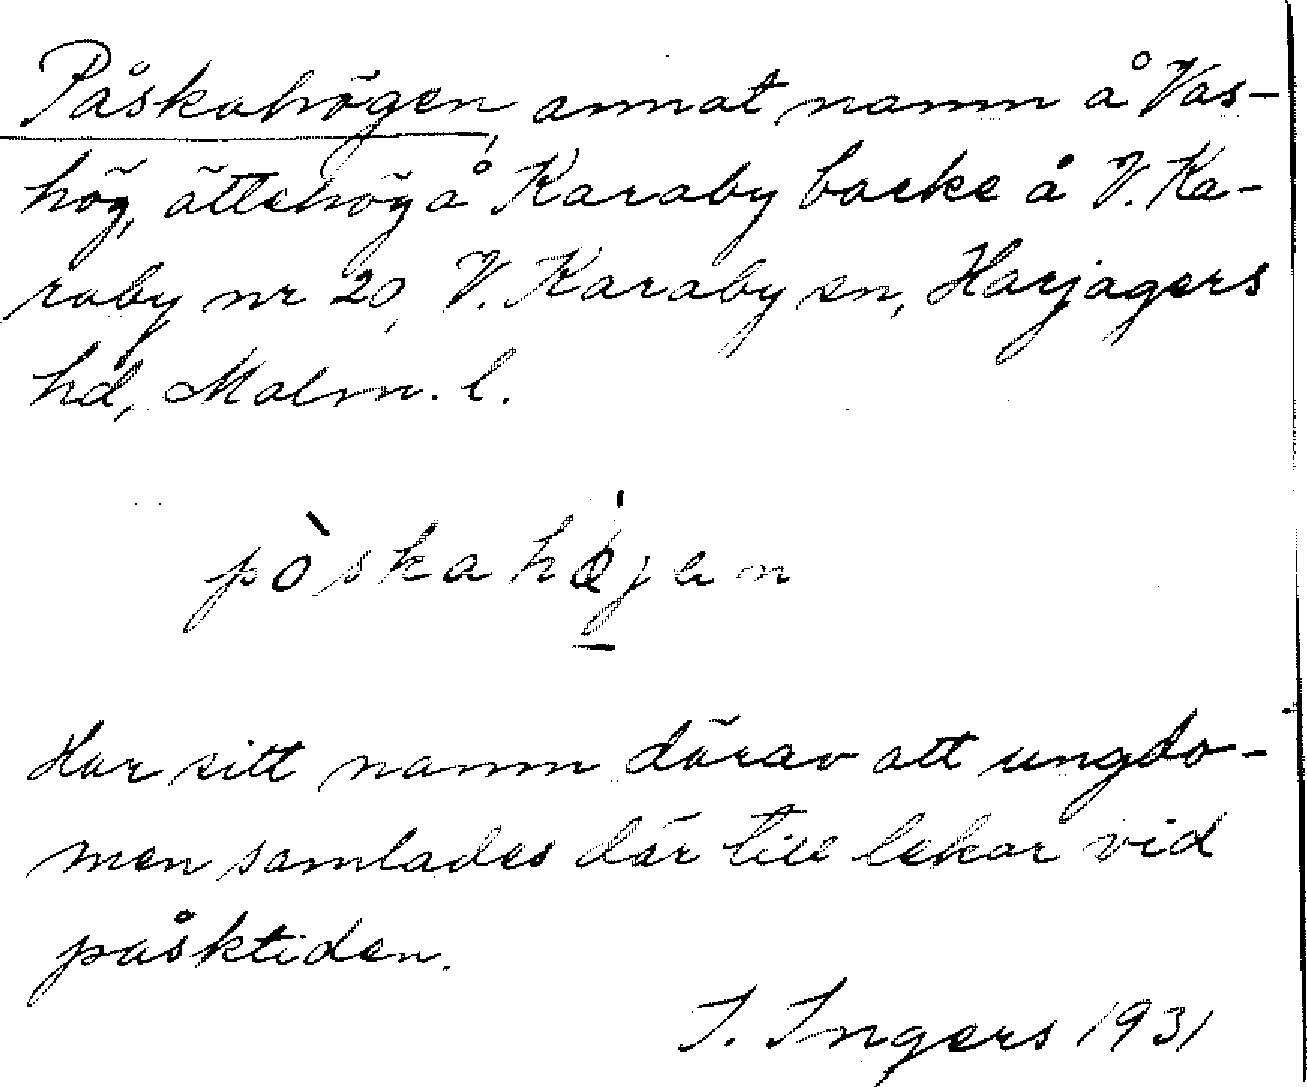 Påskahögen, annat namn å Vas-
hög, ättehög å Karaby backe å V. Ka-
raby nr 20, V. Karaby sn, Harjagers
hd, Malm. l.
pòskahøjen
Har sitt namn därav att ungdo-
men samlades där till lekar vid
påsktiden.
I. Ingers 1931